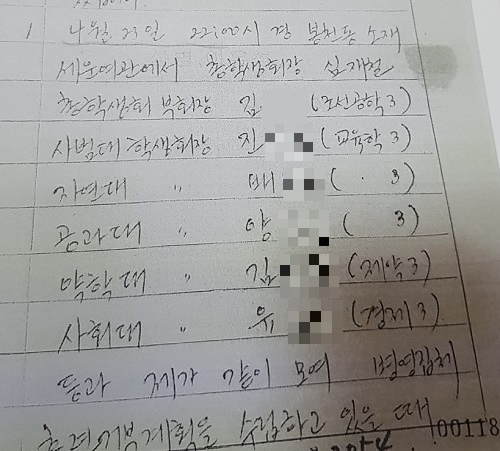 1 나월 23일 22:00시 경 봉천동 소재
세운여관에서 총학생회장 심재철
총학생회 부회장 김 (조선공학3)
사범대 학생회장 진 (교육학3)
자연대 〃 배 ( . 3)
공과대 〃 양 ( 3)
약학대 〃 김 (제약3)
사회대 〃 유 (경제3)
등과 제가 같이 모여 병영집체
훈련거부계획을 수립하고 있을 때
00118